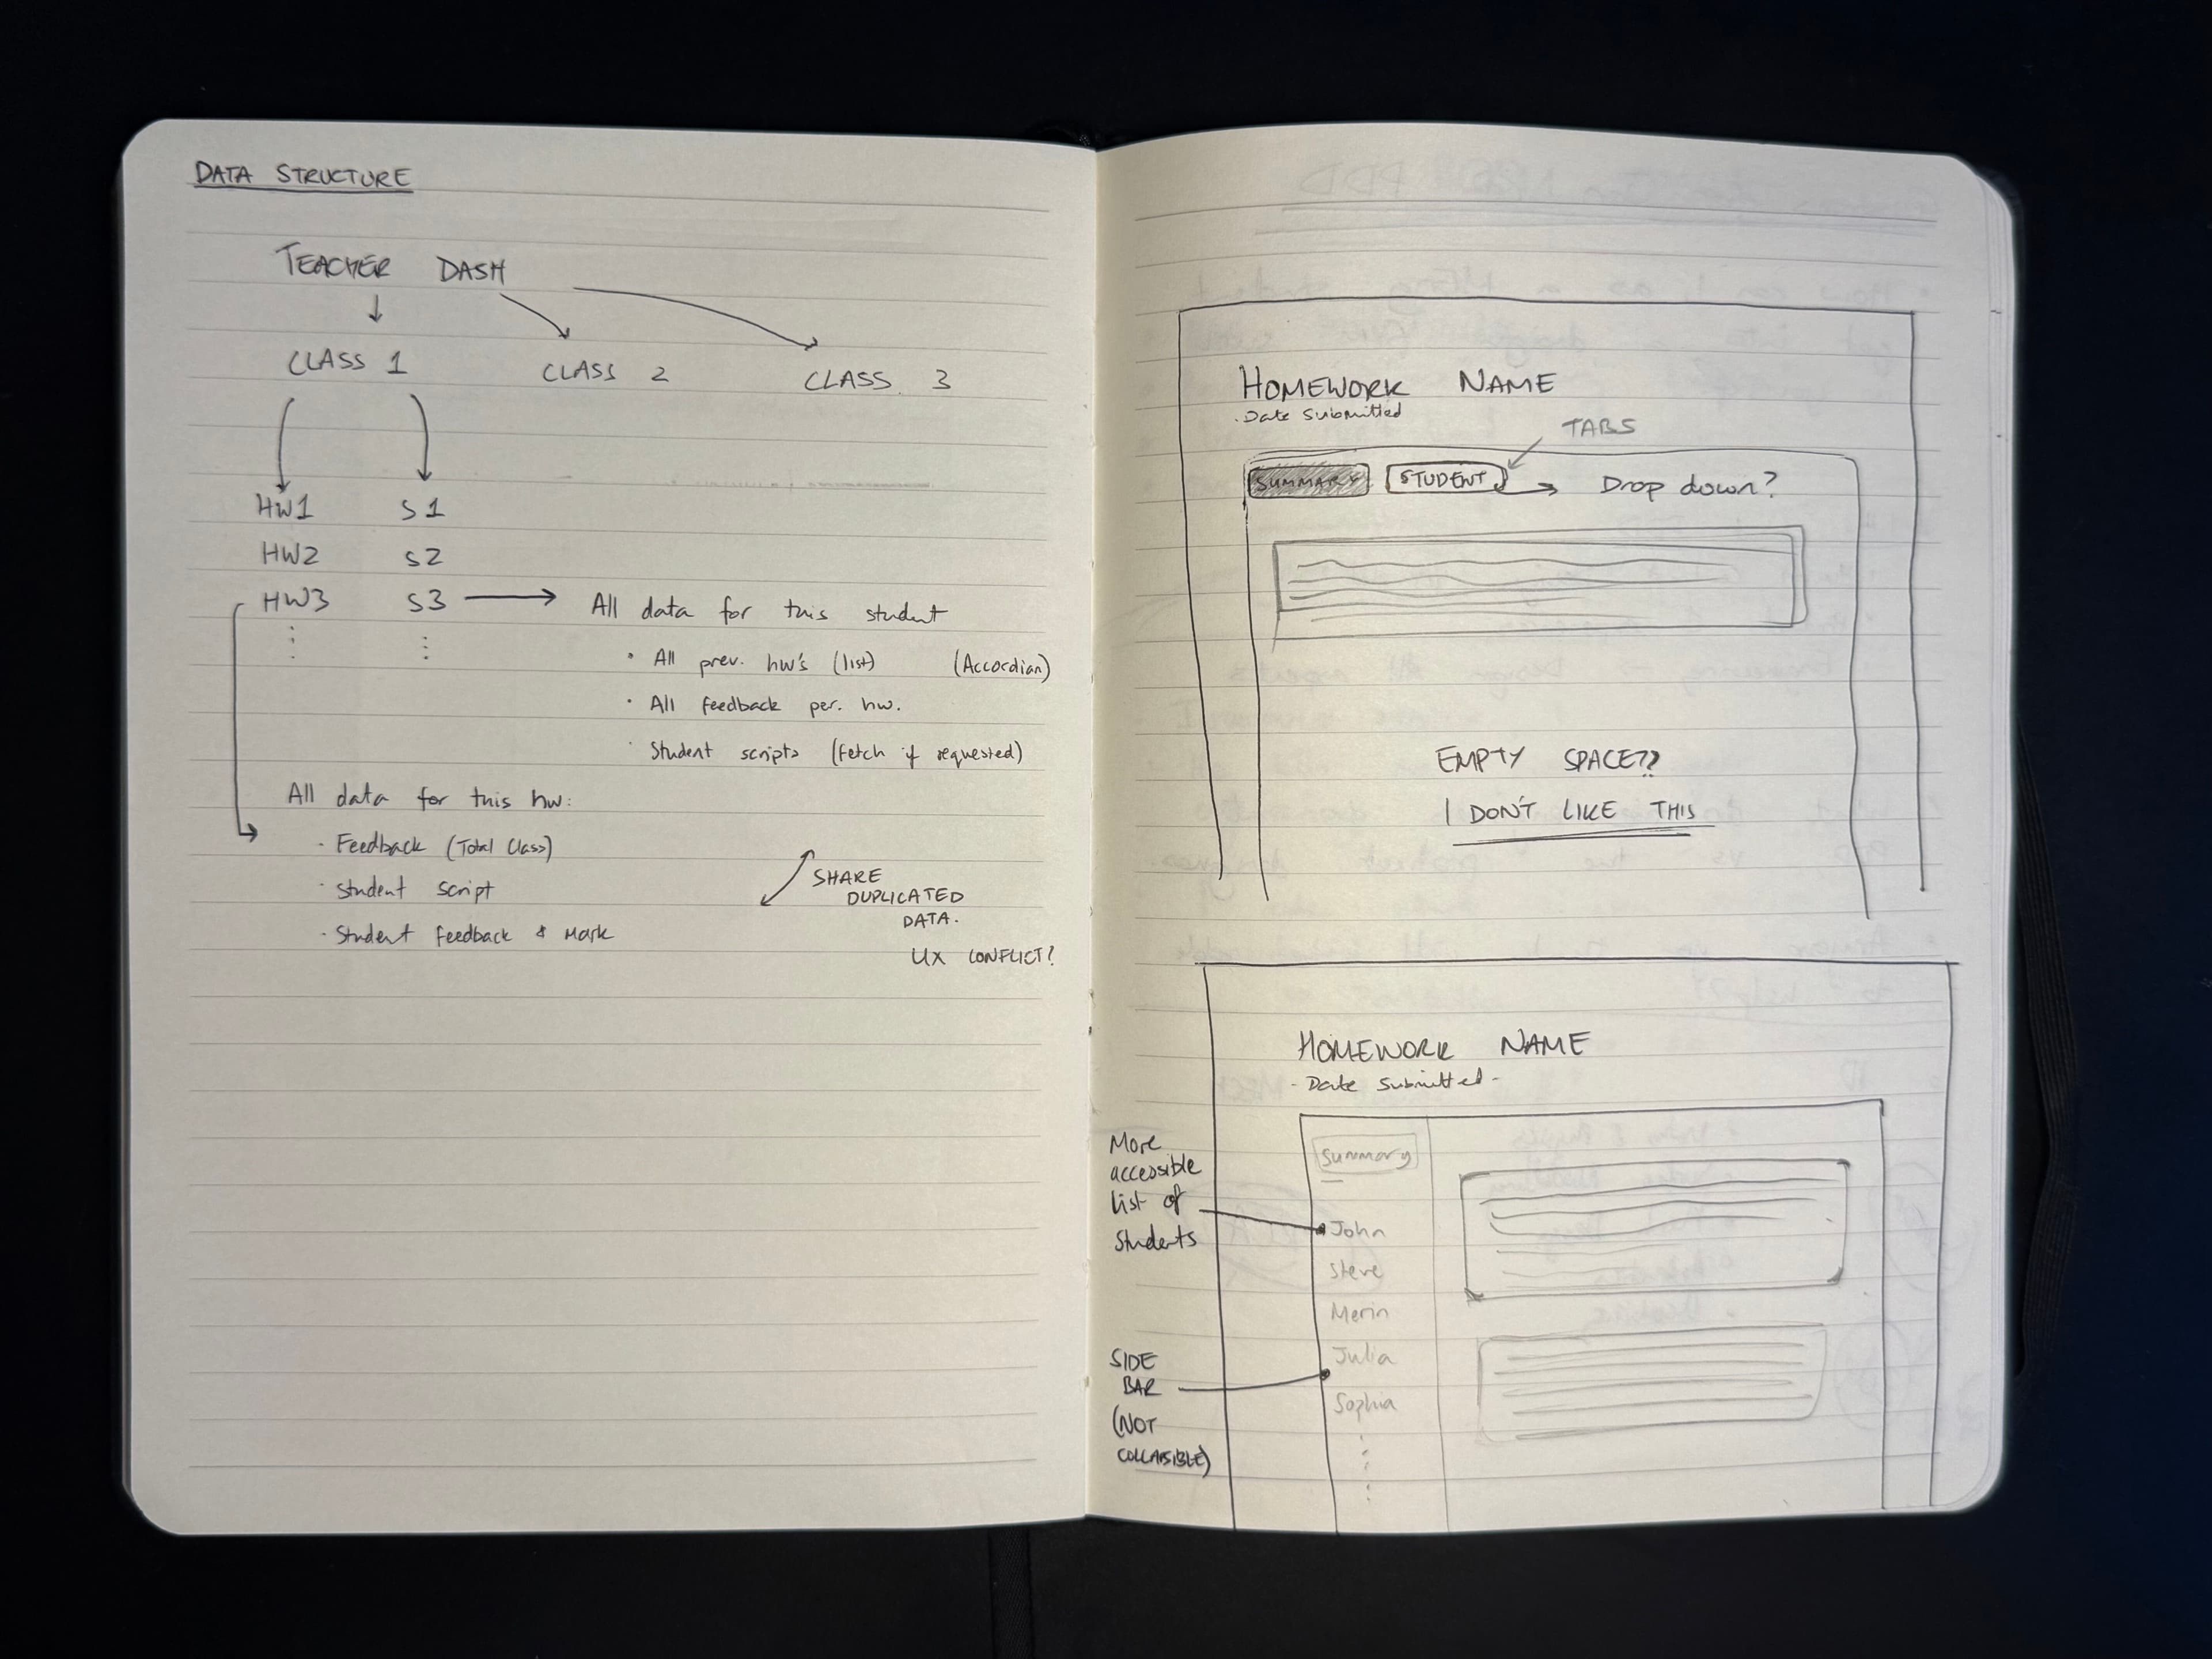 DATA STRUCTURE
TEACHER DASH
CLASS 1
CLASS 2
CLASS 3
HW1 S1
HW2 S2
HW3 S3
All data for this student
· All prev. hw's (list) (Accordian)
· All feedback per. hw.
· Student scripts (fetch if requested)
All data for this hw:
· Feedback (Total Class)
· Student script
· Student feedback & Mark
SHARE
DUPLICATED
DATA.
UX CONFLICT?
HOMEWORK NAME
· Date Submitted
TABS
SUMMARY
STUDENT
Drop down?
EMPTY SPACE??
I DON'T LIKE THIS
HOMEWORK NAME
- Date Submitted -
More
accessible
list of
Students
Summary
John
Steve
Merin
Julia
Sophia
SIDE
BAR
(NOT
COLLAPSIBLE)